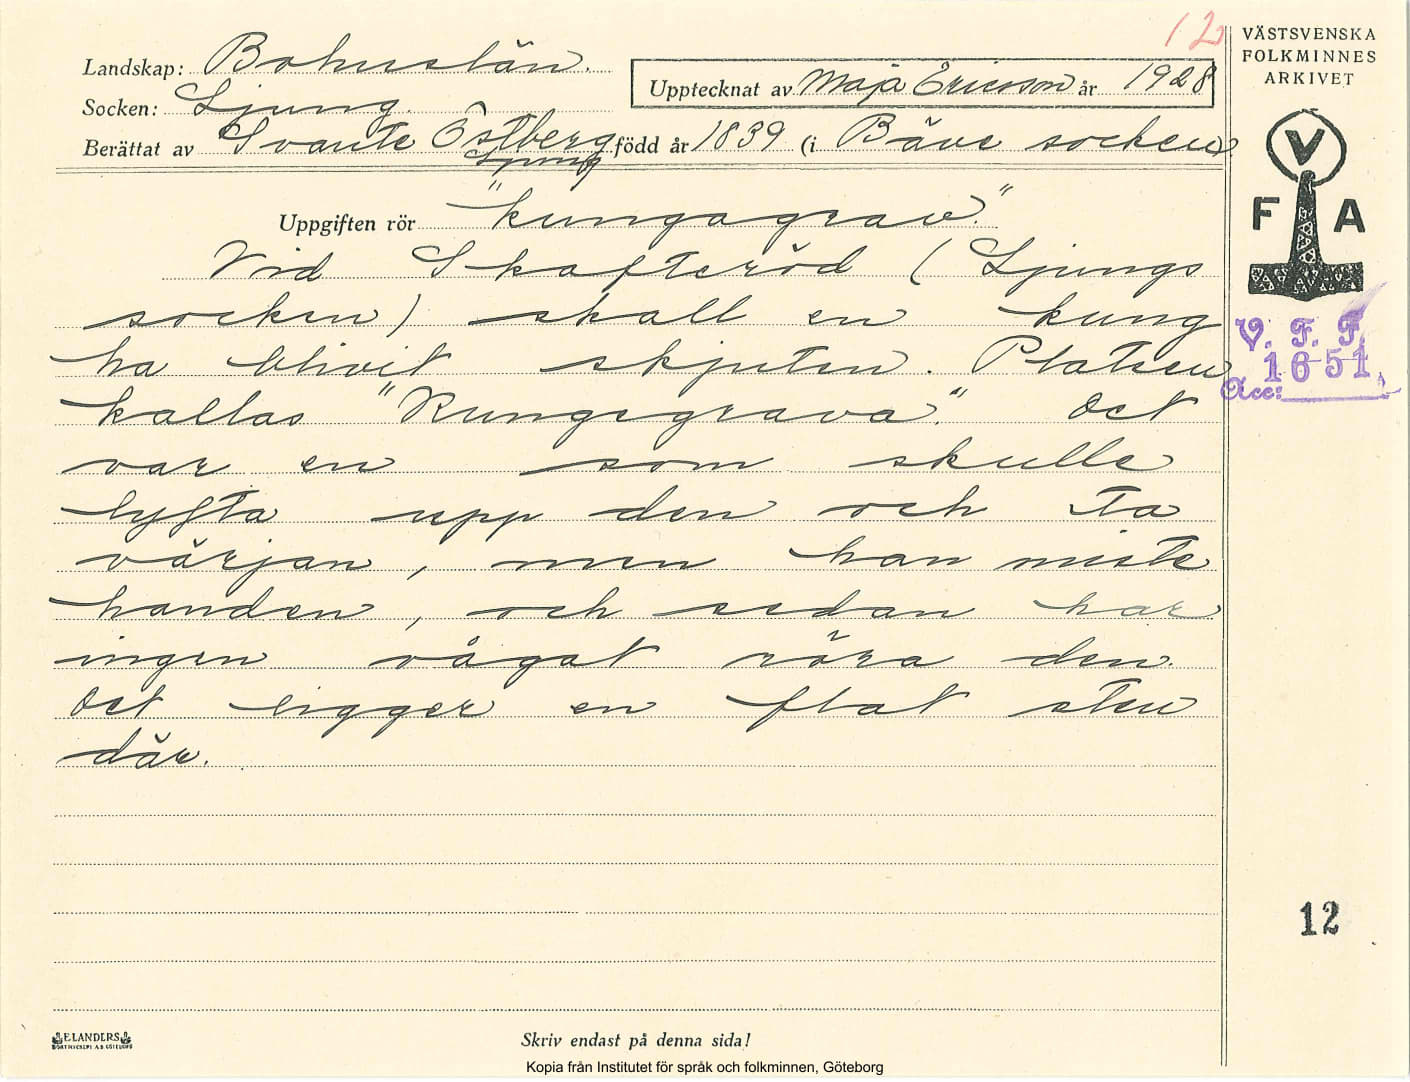 12
VÄSTSVENSKA
FOLKMINNES
ARKIVET
Landskap: Bohuslän.
Upptecknat av Maja Ericsson år 1928
Socken: Ljung
Berättat av Svante Östberg född år 1839 (i Bäve socken)
Ljung
Uppgiften rör "kungagrav".
Vid Skafteröd (Ljungs
socken) skall en kung
ha blivit skjuten. Platsen
kallas "Kungsgrava". Det
var en som skulle
lyfta upp den och ta
värjan, men han miste
handen, och sedan har
ingen vågat röra den.
Det ligger en flat sten
där.
V
F A
V. F. F.
1651
Acc:
12
ELANDERS
Skriv endast på denna sida!
Kopia från Institutet för språk och folkminnen, Göteborg